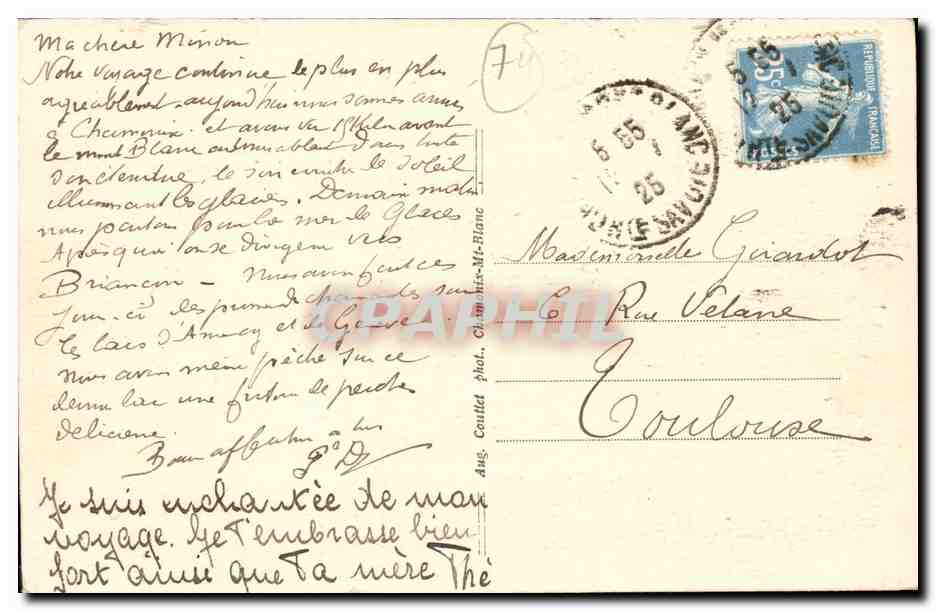 Ma chère Minon
Notre voyage continue le plus en plus
agréablement. aujourd'hui nous sommes arrivés
à Chamonix et avons vu
le mont Blanc dans toute
le soleil
illuminant les glaciers. Demain matin
nous partons pour la mer de Glaces
Après quoi on se dirigera vers
Briançon – Nous avons fait ces
jours-ci des promenades sur
les lacs d'Annecy et de Genève.
Nous avons même pêché sur ce
dernier lac une friture de perches
délicieuse.
Bien affectueux à tous
Je suis enchantée de mon
voyage. Je t'embrasse bien
fort ainsi que ta mère Thé
74
Aug. Couttet phot., Chamonix-Mt-Blanc
CPAPHIL
MONT BLANC
HTE SAVOIE
25
25c
REPUBLIQUE FRANCAISE
POSTES
Mademoiselle Girardot
6 Rue Velane
Toulouse